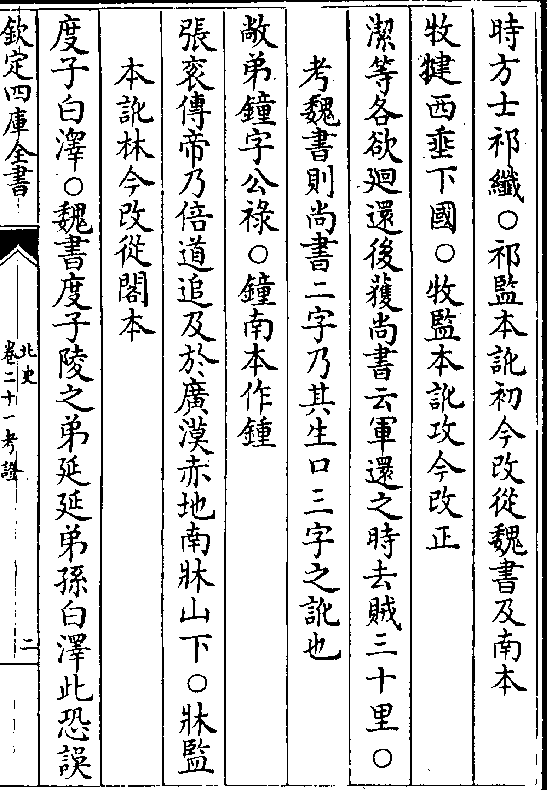 時方士祁纖○祁監本訛初今改從魏書及南本
牧犍西垂下國○牧監本訛攻今改正
潔等各欲廻還後獲尚書云軍還之時去賊三十里○
考魏書則尚書二字乃其生口三字之訛也
敞弟鐘字公祿○鐘南本作鍾
張衮傳帝乃倍道追及於廣漠赤地南牀山下○牀監
本訛林今改從閣本
度子白澤○魏書度子陵之弟延延弟孫白澤此恐誤
欽定四庫全書
北史
卷二十一考證
二